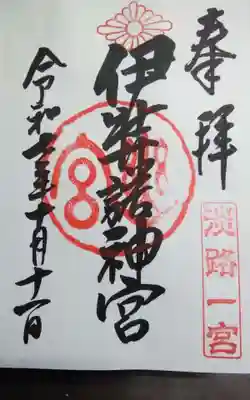 奉拝
淡路一宮
伊弉諾神宮
令和七年十月十一日